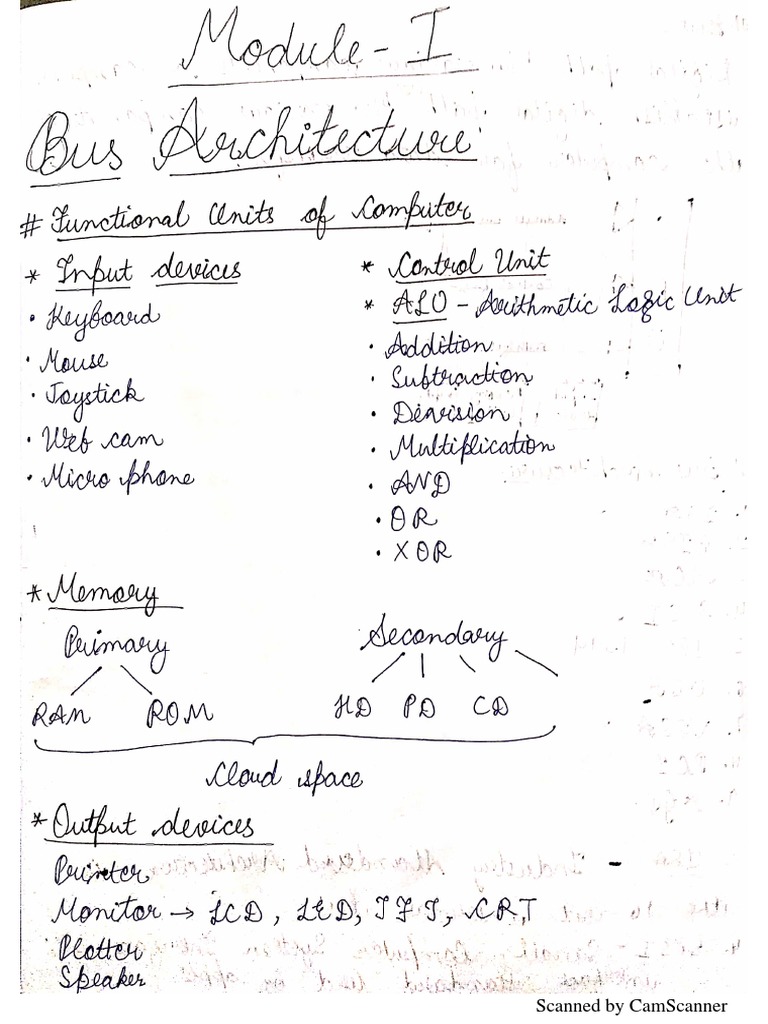 Module - I
Bus Architecture
# Functional Units of Computer
* Input devices
· Keyboard
· Mouse
· Joystick
· Web cam
· Micro phone
* Control Unit
* ALU - Arithmetic Logic Unit
· Addition
· Subtraction
· Division
· Multiplication
· AND
· OR
· XOR
* Memory
Primary
RAM ROM
Secondary
HD PD CD
Cloud space
* Output devices
Printer
Monitor → LCD, LED, TFT, CRT
Plotter
Speaker
Scanned by CamScanner